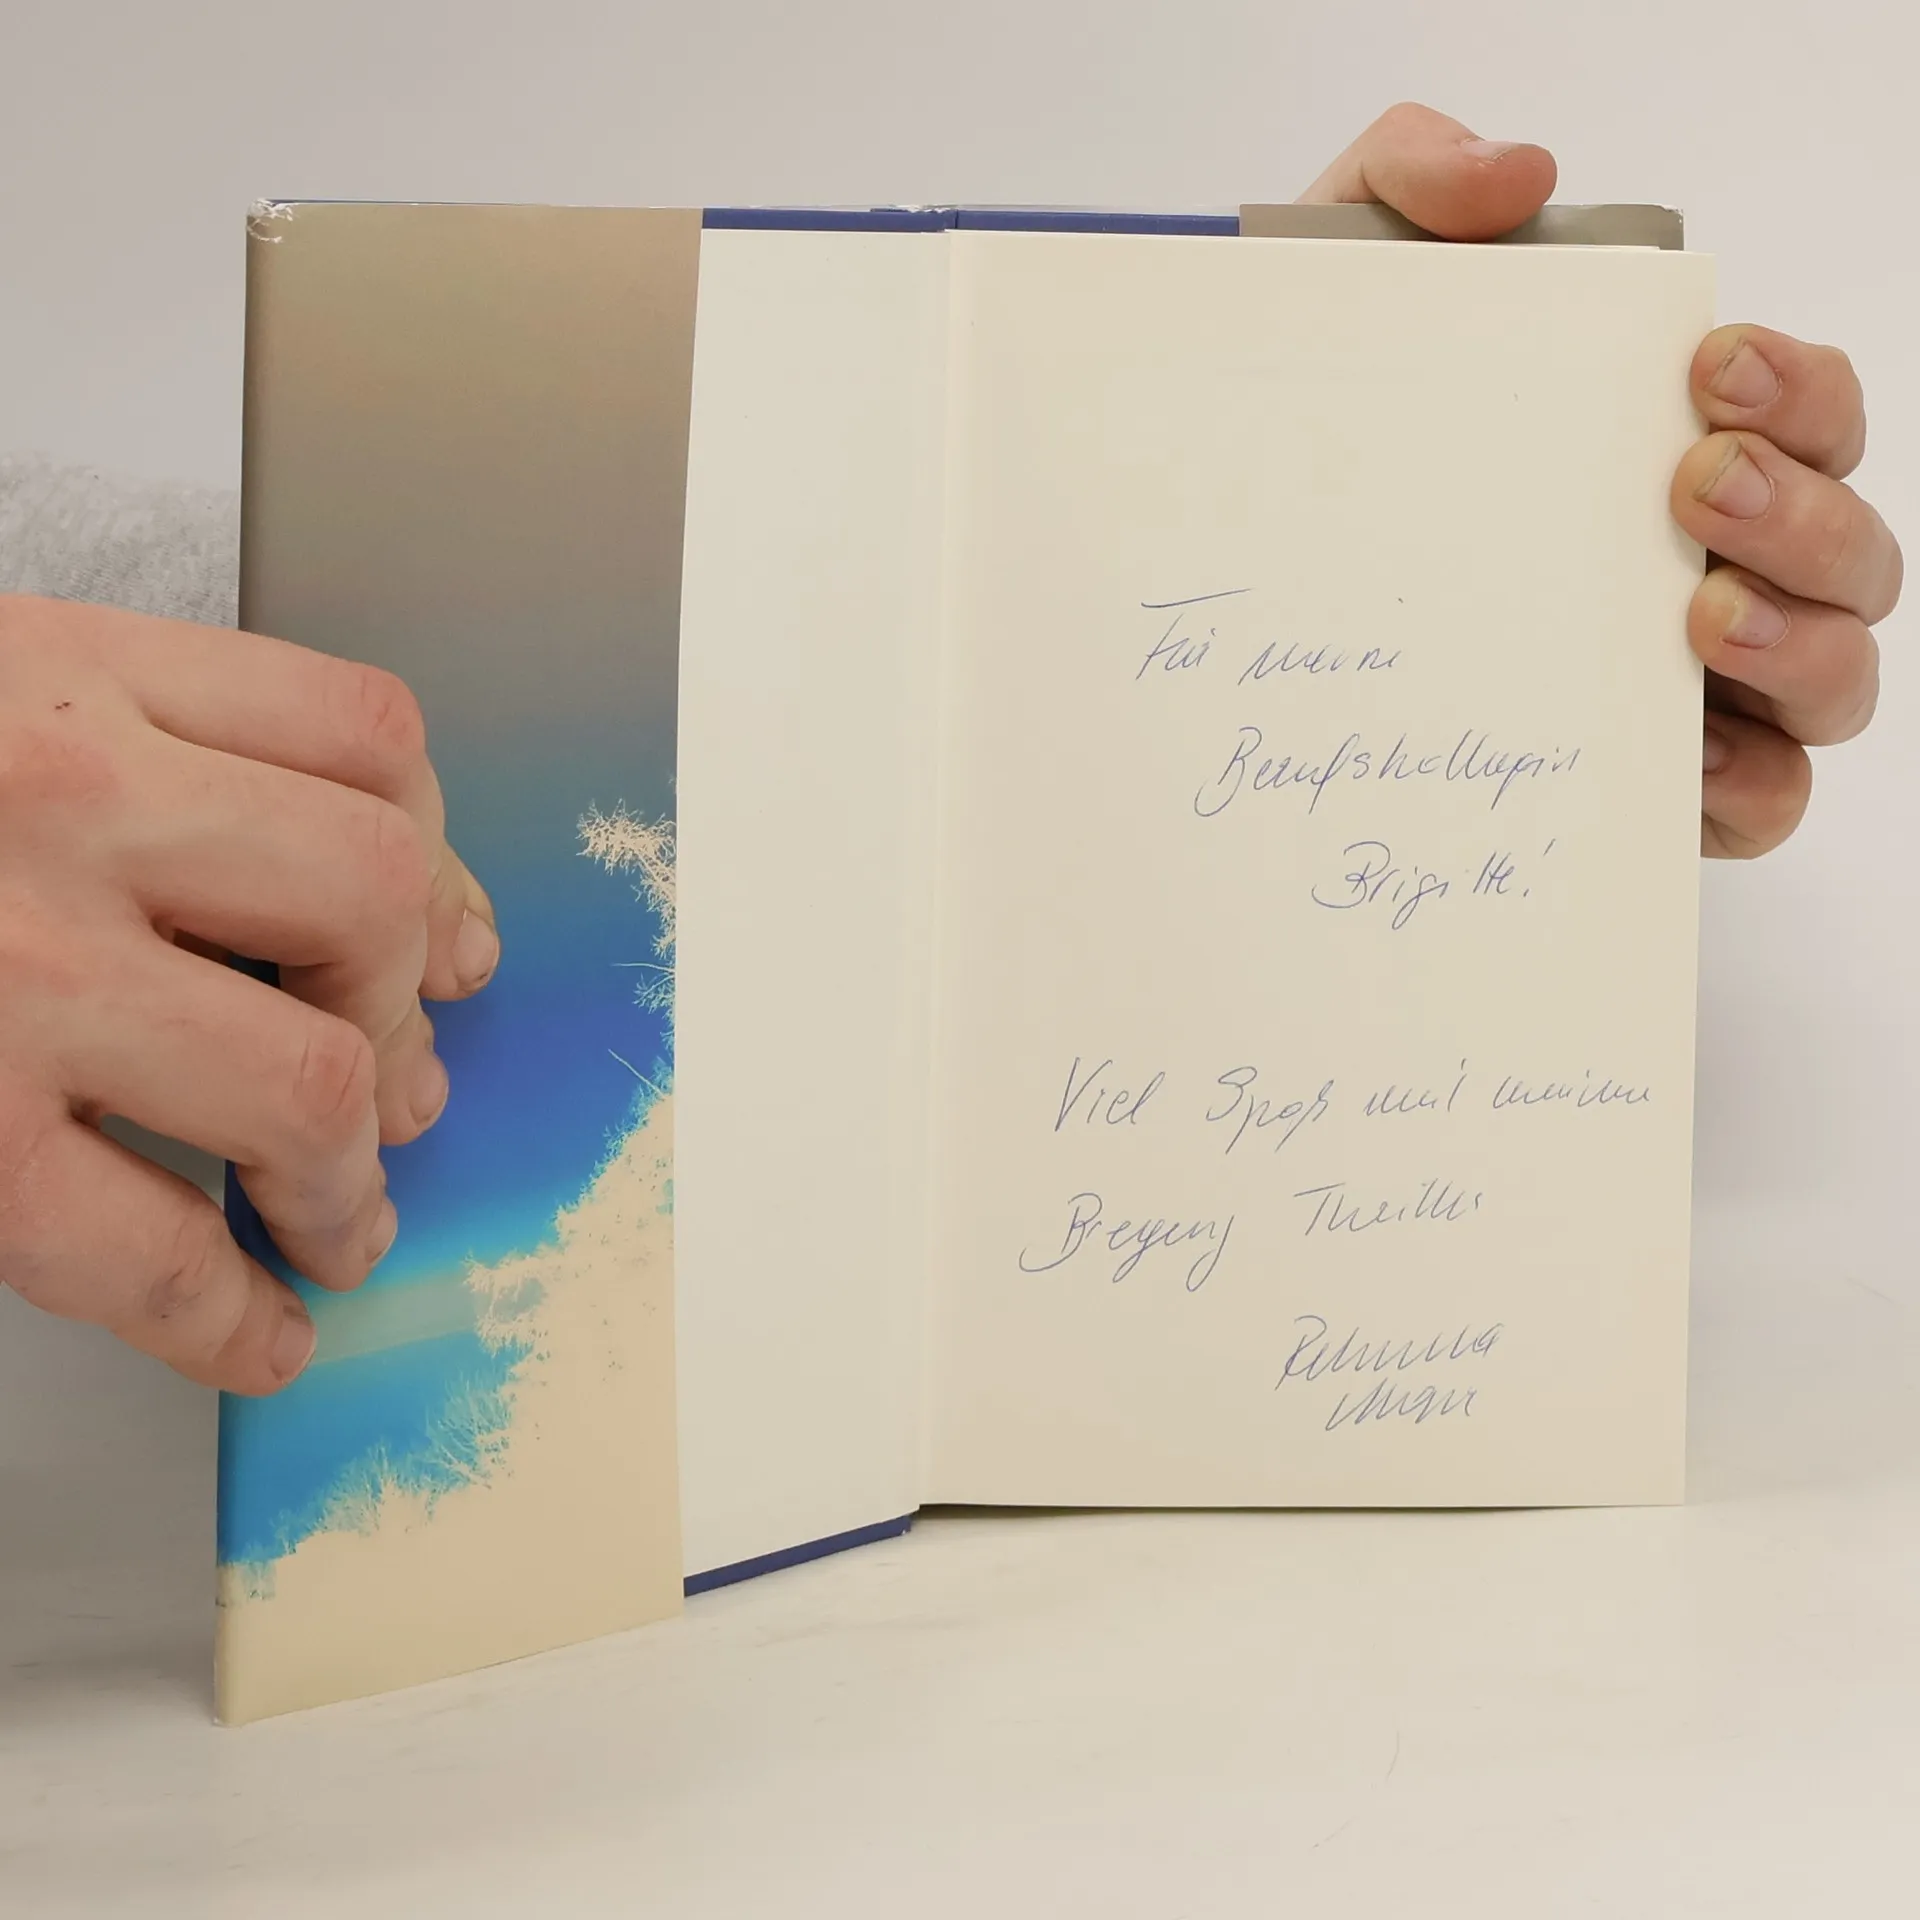 Für meine
Berufskollegin
Brigitte!
Viel Spaß mit meinem
Bregenz Thriller